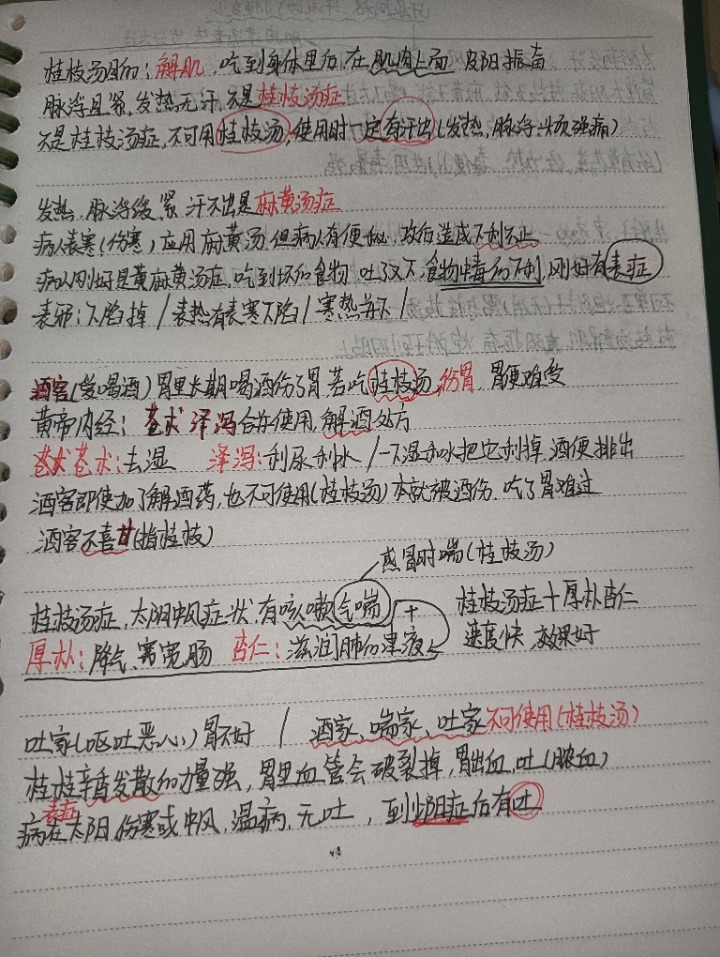 桂枝汤目的：解肌，吃到身体里后，在肌肉上面 皮阳振奋
脉浮且紧、发热无汗，不是桂枝汤症
不是桂枝汤症，不可用桂枝汤，使用时一定有汗出（发热，脉浮，头项强痛）
发热、脉浮缓、紧 汗不出是麻黄汤症
病人表寒（伤寒）应用麻黄汤，但病人有便秘，攻后造成下利不止
病人刚好是黄麻黄汤症，吃到坏的食物 吐了又下，食物中毒的下利，刚好有表症
表邪：下陷掉 / 表热有表寒下陷 / 寒热并下 /
酒客（爱喝酒）胃里长期喝酒伤了胃，若吃桂枝汤，伤胃，胃便难受
黄帝内经：苍术 泽泻合并使用，解酒处方
苍术：去湿 泽泻：利尿利水 / 一下湿和水把它利掉 酒便排出
酒客即使加了解酒药，也不可使用（桂枝汤）本就被酒伤，吃了胃难过
酒客不喜甘（指桂枝）
感冒时喘（桂枝汤）
桂枝汤症，太阳中风症状，有咳嗽气喘 + 桂枝汤症+厚朴杏仁
厚朴：降气、宽肠 杏仁：滋润肺的津液 速度快，效果好
吐家（呕吐恶心）胃不好 / 酒家、喘家、吐家不可使用（桂枝汤）
桂枝辛香发散的力量强，胃里血管会破裂掉，胃出血，吐（脓血）
病在太阳 伤寒或中风，温病，无吐，到少阳症后有吐